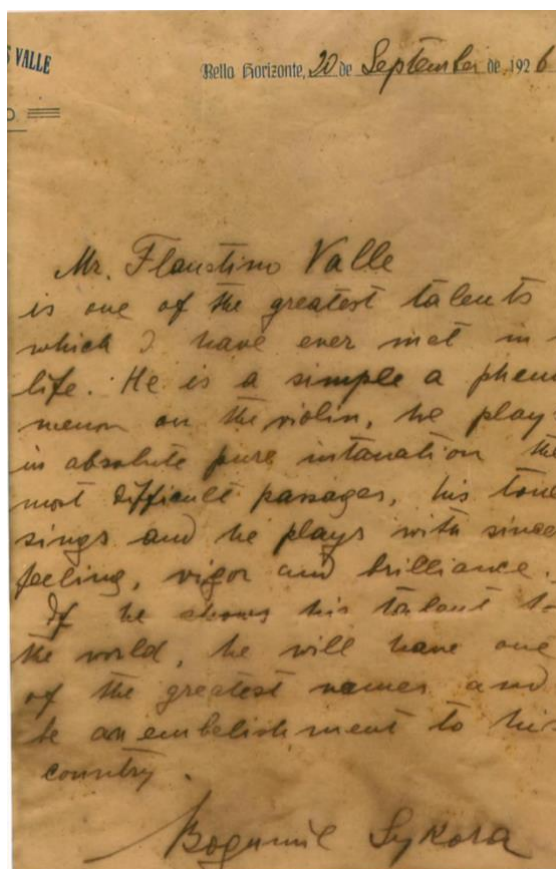 S VALLE
O
Bello Horizonte, 20 de September de 1926
Mr. Flaustino Valle
is one of the greatest talents
which I have ever met in
life. He is a simple a phen
menon on the violin, he play
in absolute pure intanation the
most difficult passages, his tone
sings and he plays with since
feeling, vigor and brilliance.
If he shows his talent to
the world, he will have one
of the greatest names and
be an embelishment to his
country.
Bogumil Sykora